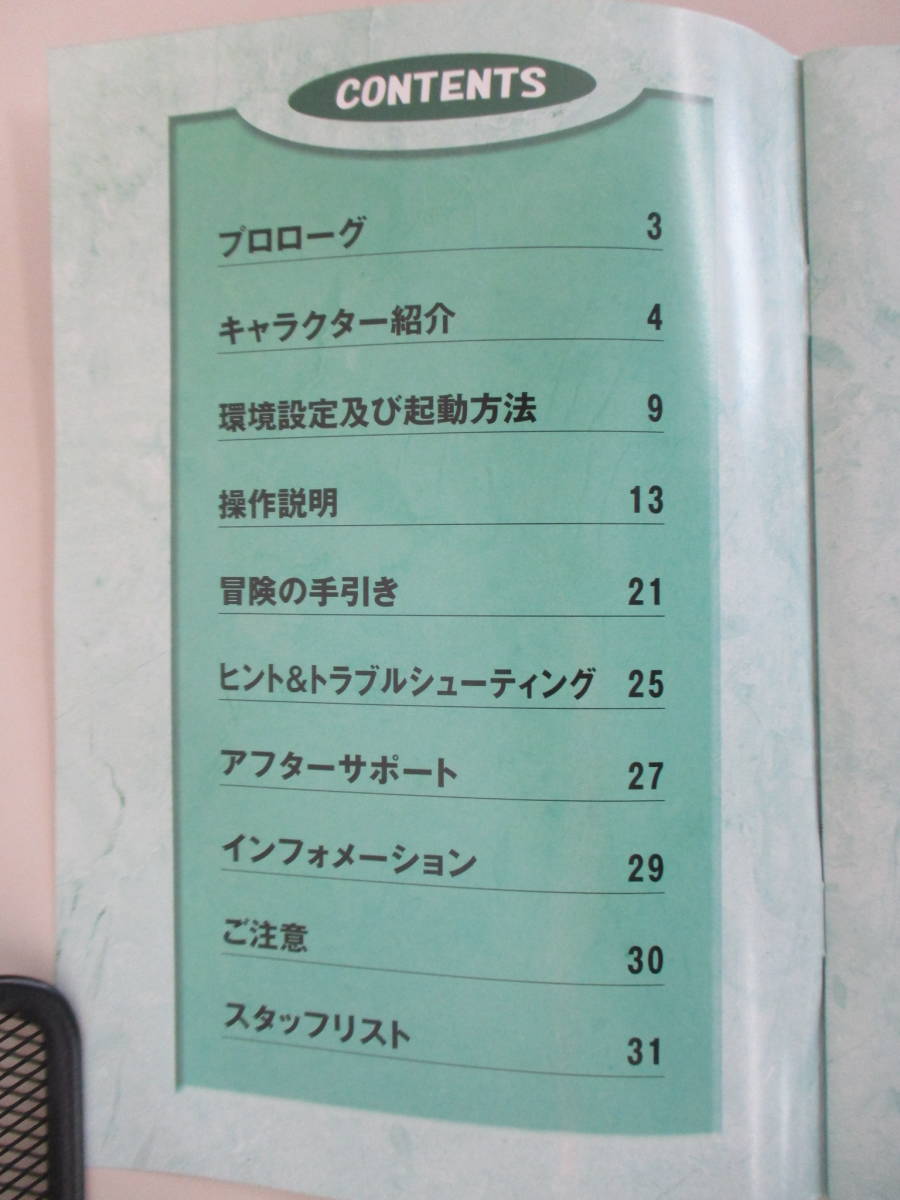 CONTENTS
プロローグ 3
キャラクター紹介 4
環境設定及び起動方法 9
操作説明 13
冒険の手引き 21
ヒント&トラブルシューティング 25
アフターサポート 27
インフォメーション 29
ご注意 30
スタッフリスト 31